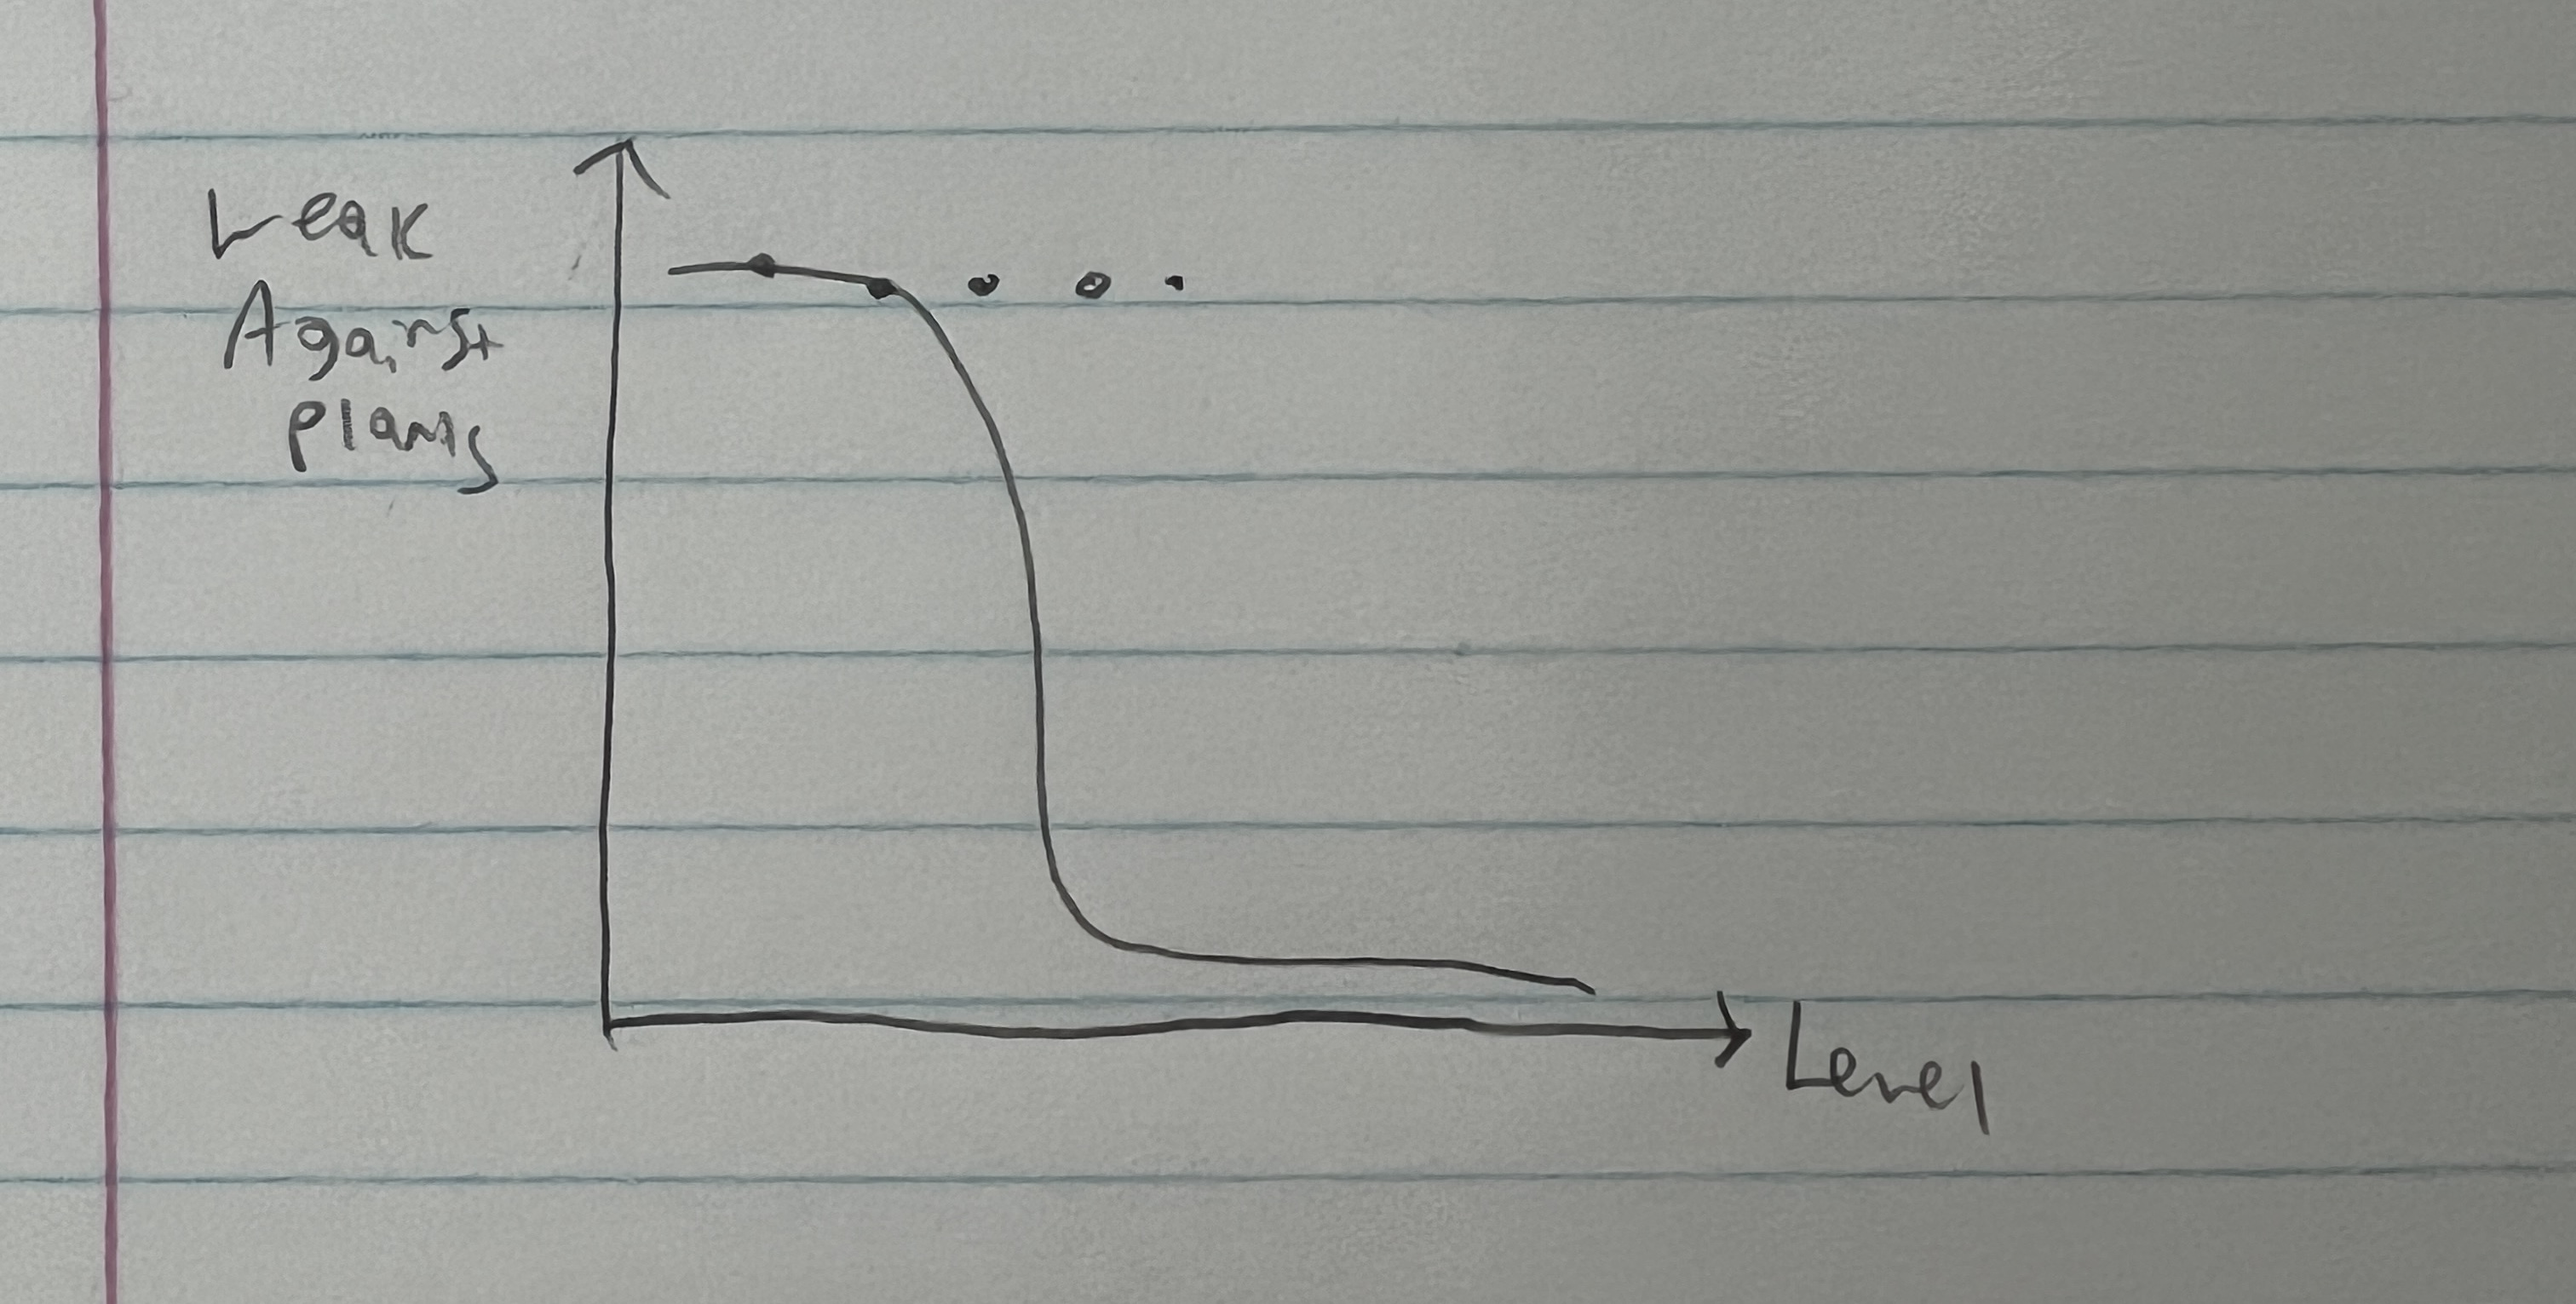 Leak
Against
plans
Level